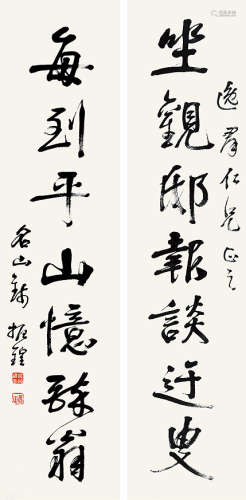 逸群仁兄正之
坐觀邸報談迂叟
每到平山憶醉翁
名山錢振鍠